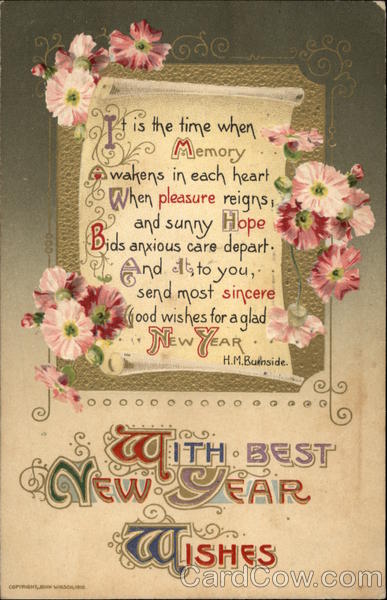 It is the time when
Memory
Awakens in each heart
When pleasure reigns,
and sunny Hope
Bids anxious care depart.
And I to you,
send most sincere
Good wishes for a glad
NEW YEAR
H.M. Burnside.
WITH BEST
NEW YEAR
WISHES
COPYRIGHT, JOHN WINSCH, 1910
CardCow.com